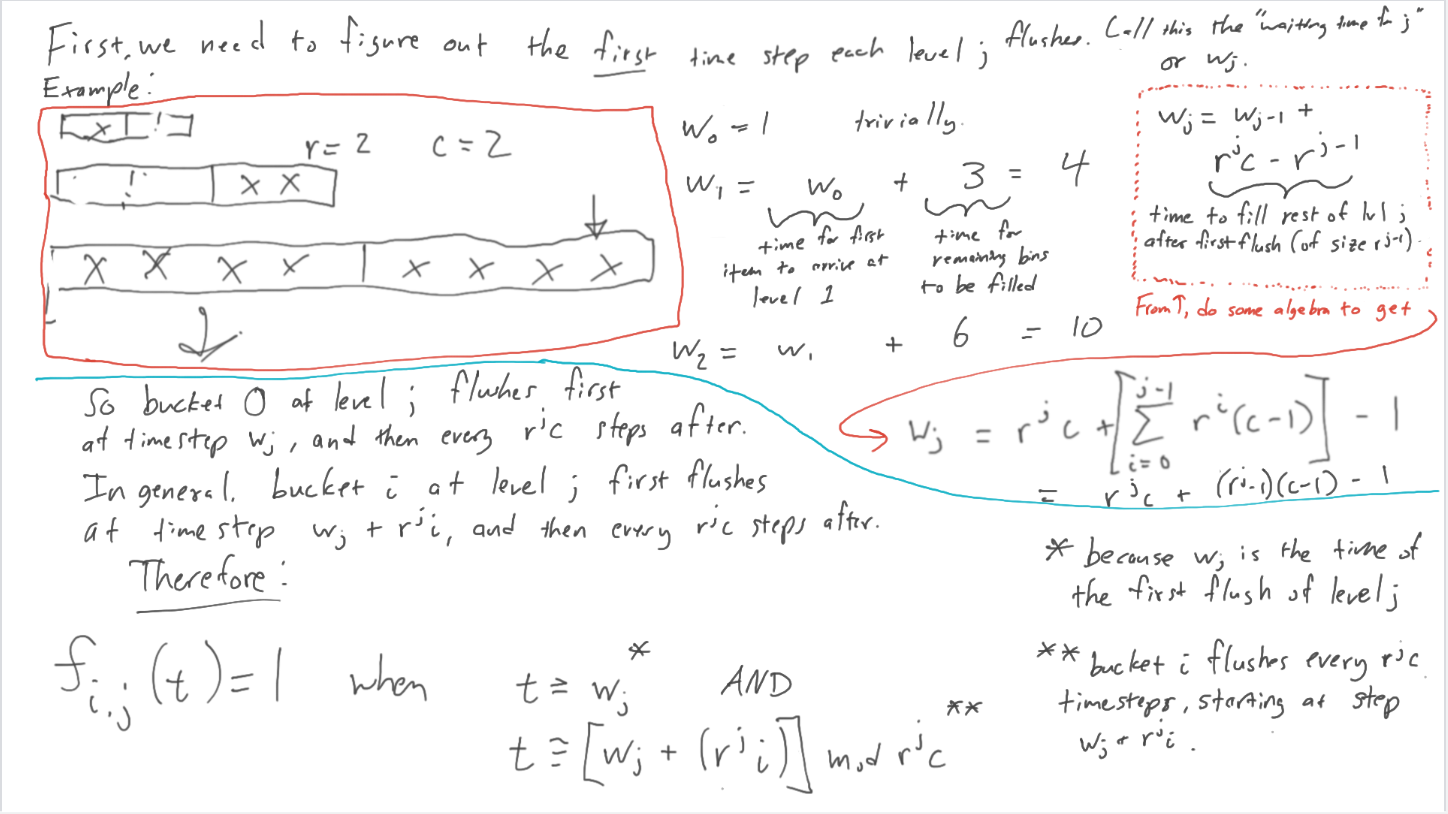 First, we need to figure out the first time step each level j flushes. Call this the "waiting time for j"
or w_j.
Example:
x !
r = 2 c = 2
! x x
x x x x x x x x
w_0 = 1 trivially.
w_1 = w_0 + 3 = 4
time for first
item to arrive at
level 1
time for
remaining bins
to be filled
w_2 = w_1 + 6 = 10
w_j = w_{j-1} +
r^j c - r^{j-1}
time to fill rest of lvl j
after first flush (of size r^{j-1}).
From ↑, do some algebra to get
w_j = r^j c + [∑_{i=0}^{j-1} r^i (c-1)] - 1
= r^j c + (r^j-1)(c-1) - 1
So bucket 0 at level j flushes first
at timestep w_j, and then every r^j c steps after.
In general, bucket i at level j first flushes
at time step w_j + r^j i, and then every r^j c steps after.
Therefore:
f_{i,j}(t) = 1 when t ≥ w_j * AND
t ≡ [w_j + (r^j i)] mod r^j c **
* because w_j is the time of
the first flush of level j
** bucket i flushes every r^j c
timesteps, starting at step
w_j + r^j i.